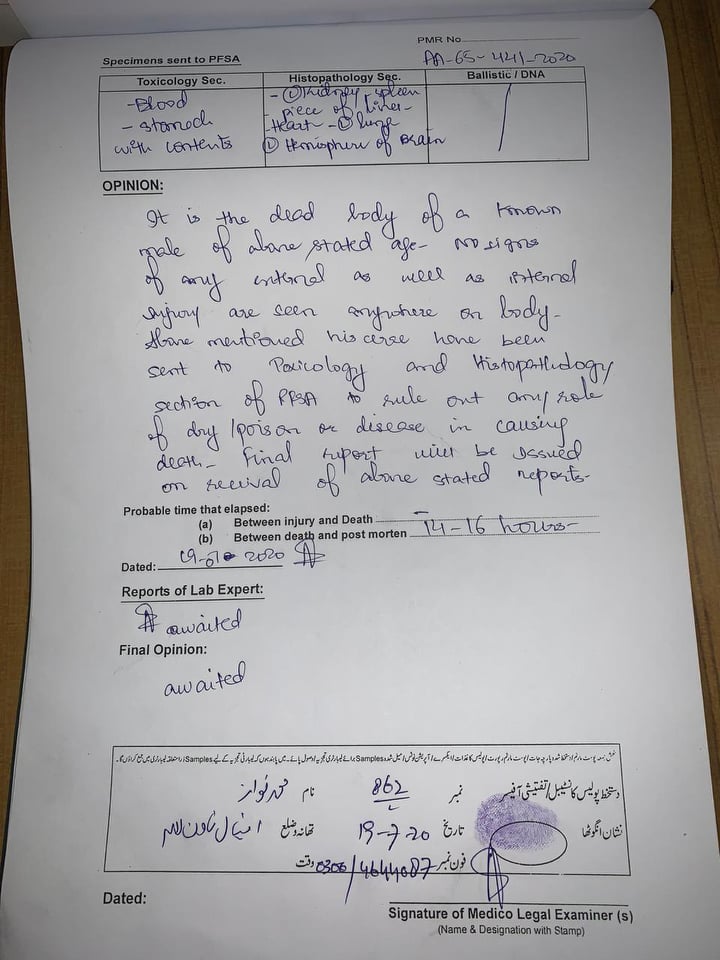 PMR No.
AA-65-441-2020
Specimens sent to PFSA
Toxicology Sec.
Histopathology Sec.
Ballistic / DNA
-Blood
- Stomach
with contents
- Ⓛ Kidney - spleen
- piece of Liver-
-Heart - Ⓛ lung
Ⓛ Hemisphere of Brain
OPINION:
It is the dead body of a known
male of above stated age- No signs
of any external as well as internal
injury are seen anywhere on body-
Above mentioned viscerae have been
sent to Toxicology and Histopathology
section of PFSA to rule out any role
of drug /poison or disease in causing
death- Final report will be issued
on recival of above stated reports-
Probable time that elapsed:
(a) Between injury and Death -
(b) Between death and post morten 14-16 hours-
Dated: 2020
Reports of Lab Expert:
awaited
Final Opinion:
awaited
دستخط پولیس کانسٹیبل/تفتیشی آفیسر نمبر 862 نام محمد نواز
نشان انگوٹھا تاریخ 19-7-20 تھانہ و ضلع
فون نمبر 0306/4644087 وقت
Dated:
Signature of Medico Legal Examiner (s)
(Name & Designation with Stamp)